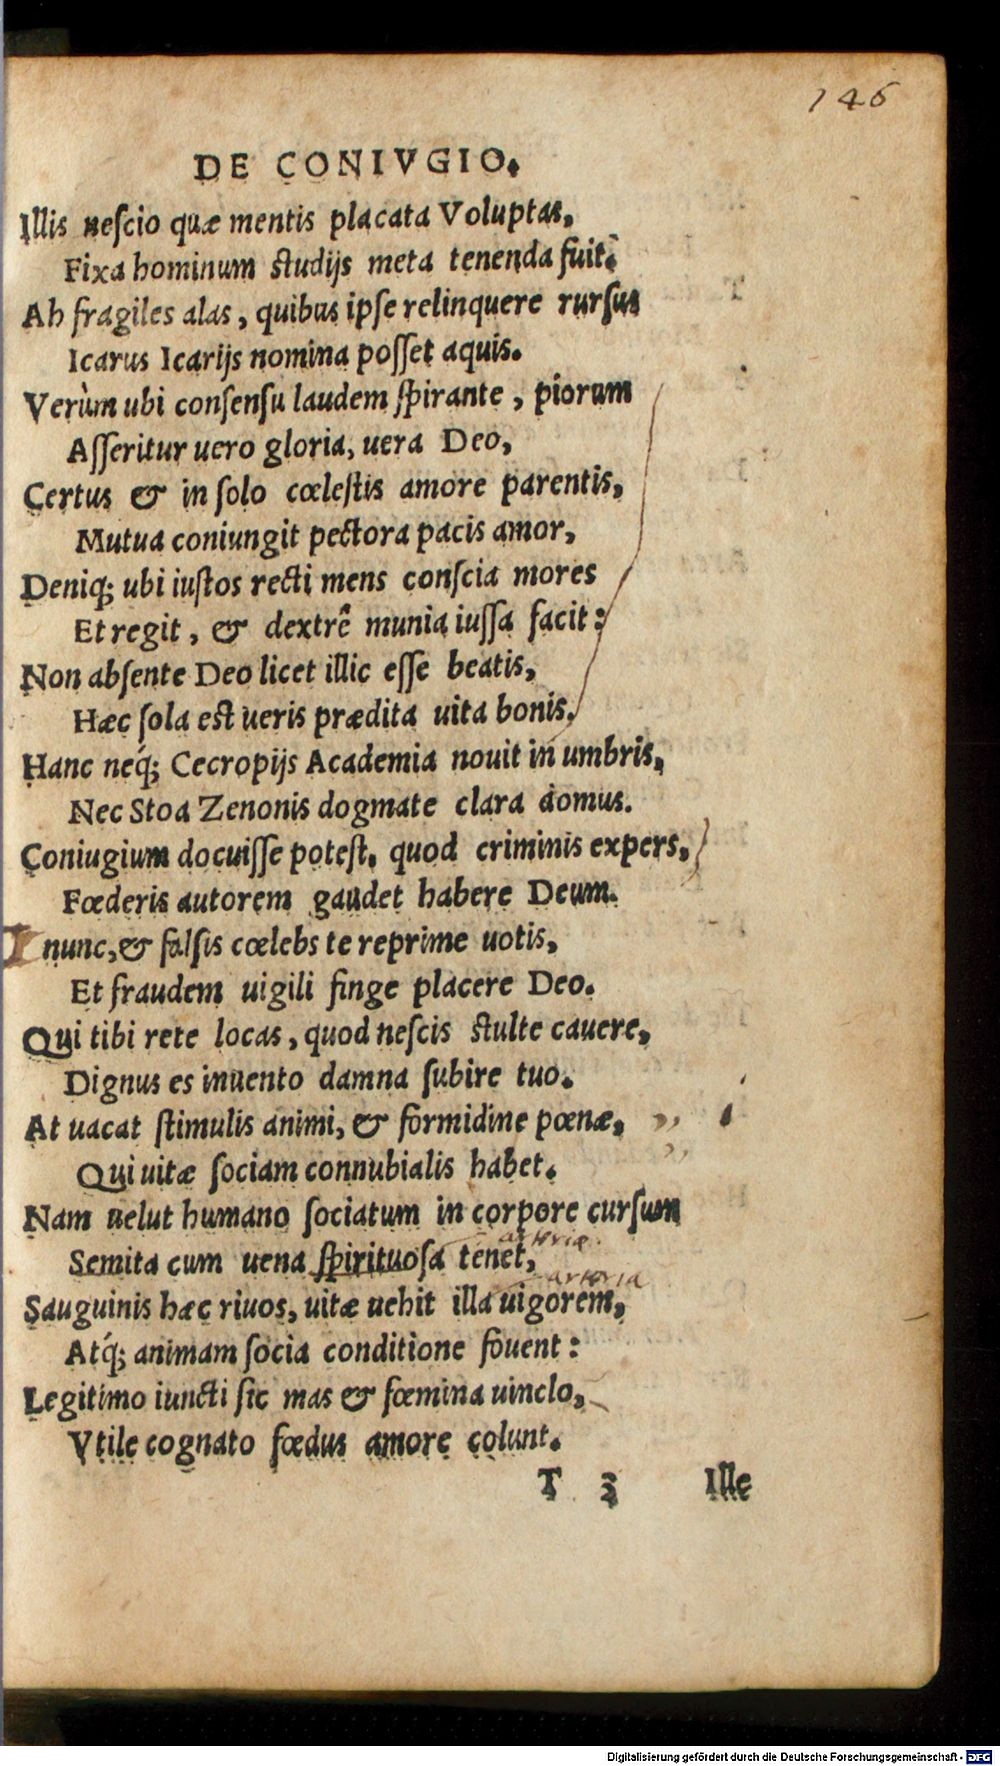 146
DE CONIVGIO.
Illis neſcio quæ mentis placata Voluptas,
Fixa hominum ſtudijs meta tenenda fuit.
Ah fragiles alas, quibus ipſe relinquere rurſus
Icarus Icarijs nomina poſſet aquis.
Verùm ubi conſenſu laudem ſpirante, piorum
Aſſeritur uero gloria, uera Deo,
Certus & in ſolo cœleſtis amore parentis,
Mutua coniungit pectora pacis amor,
Deniq; ubi iuſtos recti mens conſcia mores
Et regit, & dextrê munia iuſſa facit:
Non abſente Deo licet illic eſſe beatis,
Hæc ſola eſt ueris prædita uita bonis.
Hanc neq́; Cecropijs Academia nouit in umbris,
Nec Stoa Zenonis dogmate clara domus.
Coniugium docuiſſe poteſt, quod criminis expers,
Fœderis autorem gaudet habere Deum.
I nunc, & falſis cœlebs te reprime uotis,
Et fraudem uigili finge placere Deo.
Qui tibi rete locas, quod neſcis ſtulte cauere,
Dignus es inuento damna ſubire tuo.
At uacat ſtimulis animi, & formidine pœnæ, ,,
Qui uitæ ſociam connubialis habet. ,,
Nam uelut humano ſociatum in corpore curſum
arteriæ.
Semita cum uena ſpirituoſa tenet,
arteria
Sauguinis hæc riuos, uitæ uehit illa uigorem,
Atq́; animam ſocia conditione fouent:
Legitimo iuncti ſic mas & fœmina uinclo,
Vtile cognato fœdus amore colunt.
T 3 Ille
Digitalisierung gefördert durch die Deutsche Forschungsgemeinschaft - DFG